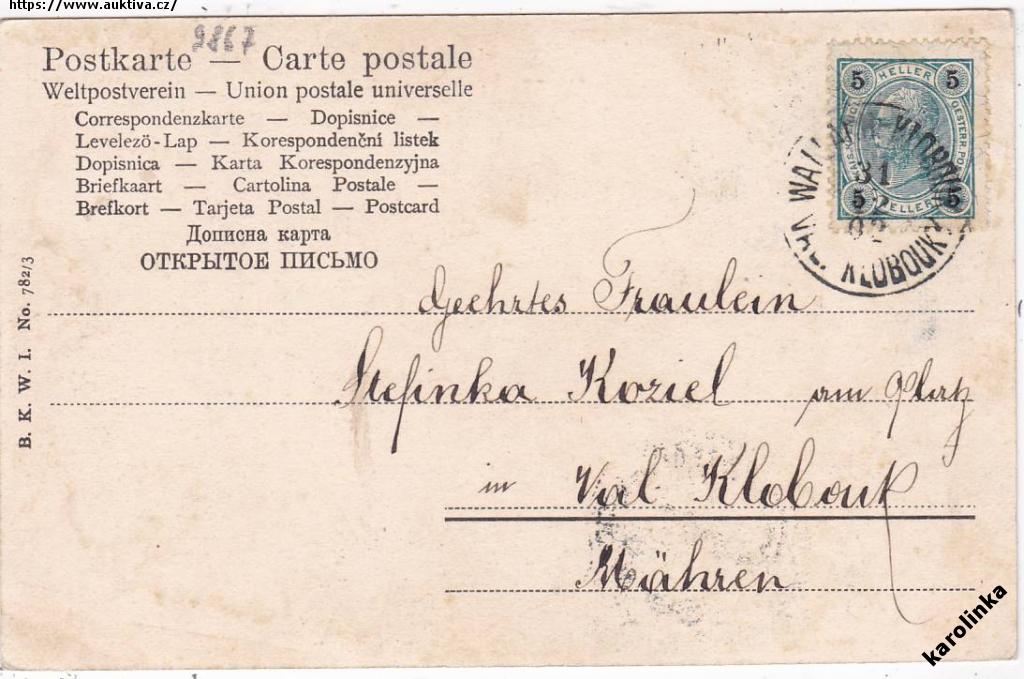 https://www.auktiva.cz/
9867
Postkarte — Carte postale
Weltpostverein — Union postale universelle
Correspondenzkarte — Dopisnice —
Levelezö-Lap — Korespondenční listek
Dopisnica — Karta Korespondenzyjna
Briefkaart — Cartolina Postale —
Brefkort — Tarjeta Postal — Postcard
Дописна карта
ОТКРЫТОЕ ПИСЬМО
5 HELLER 5
5 HELLER 5
31
VAL. KLOBOUK
B. K. W. I. No. 782/3
Geehrtes Fraulein
Stefinka Koziel am Platz
in Val Klobouk
Mähren
karolinka